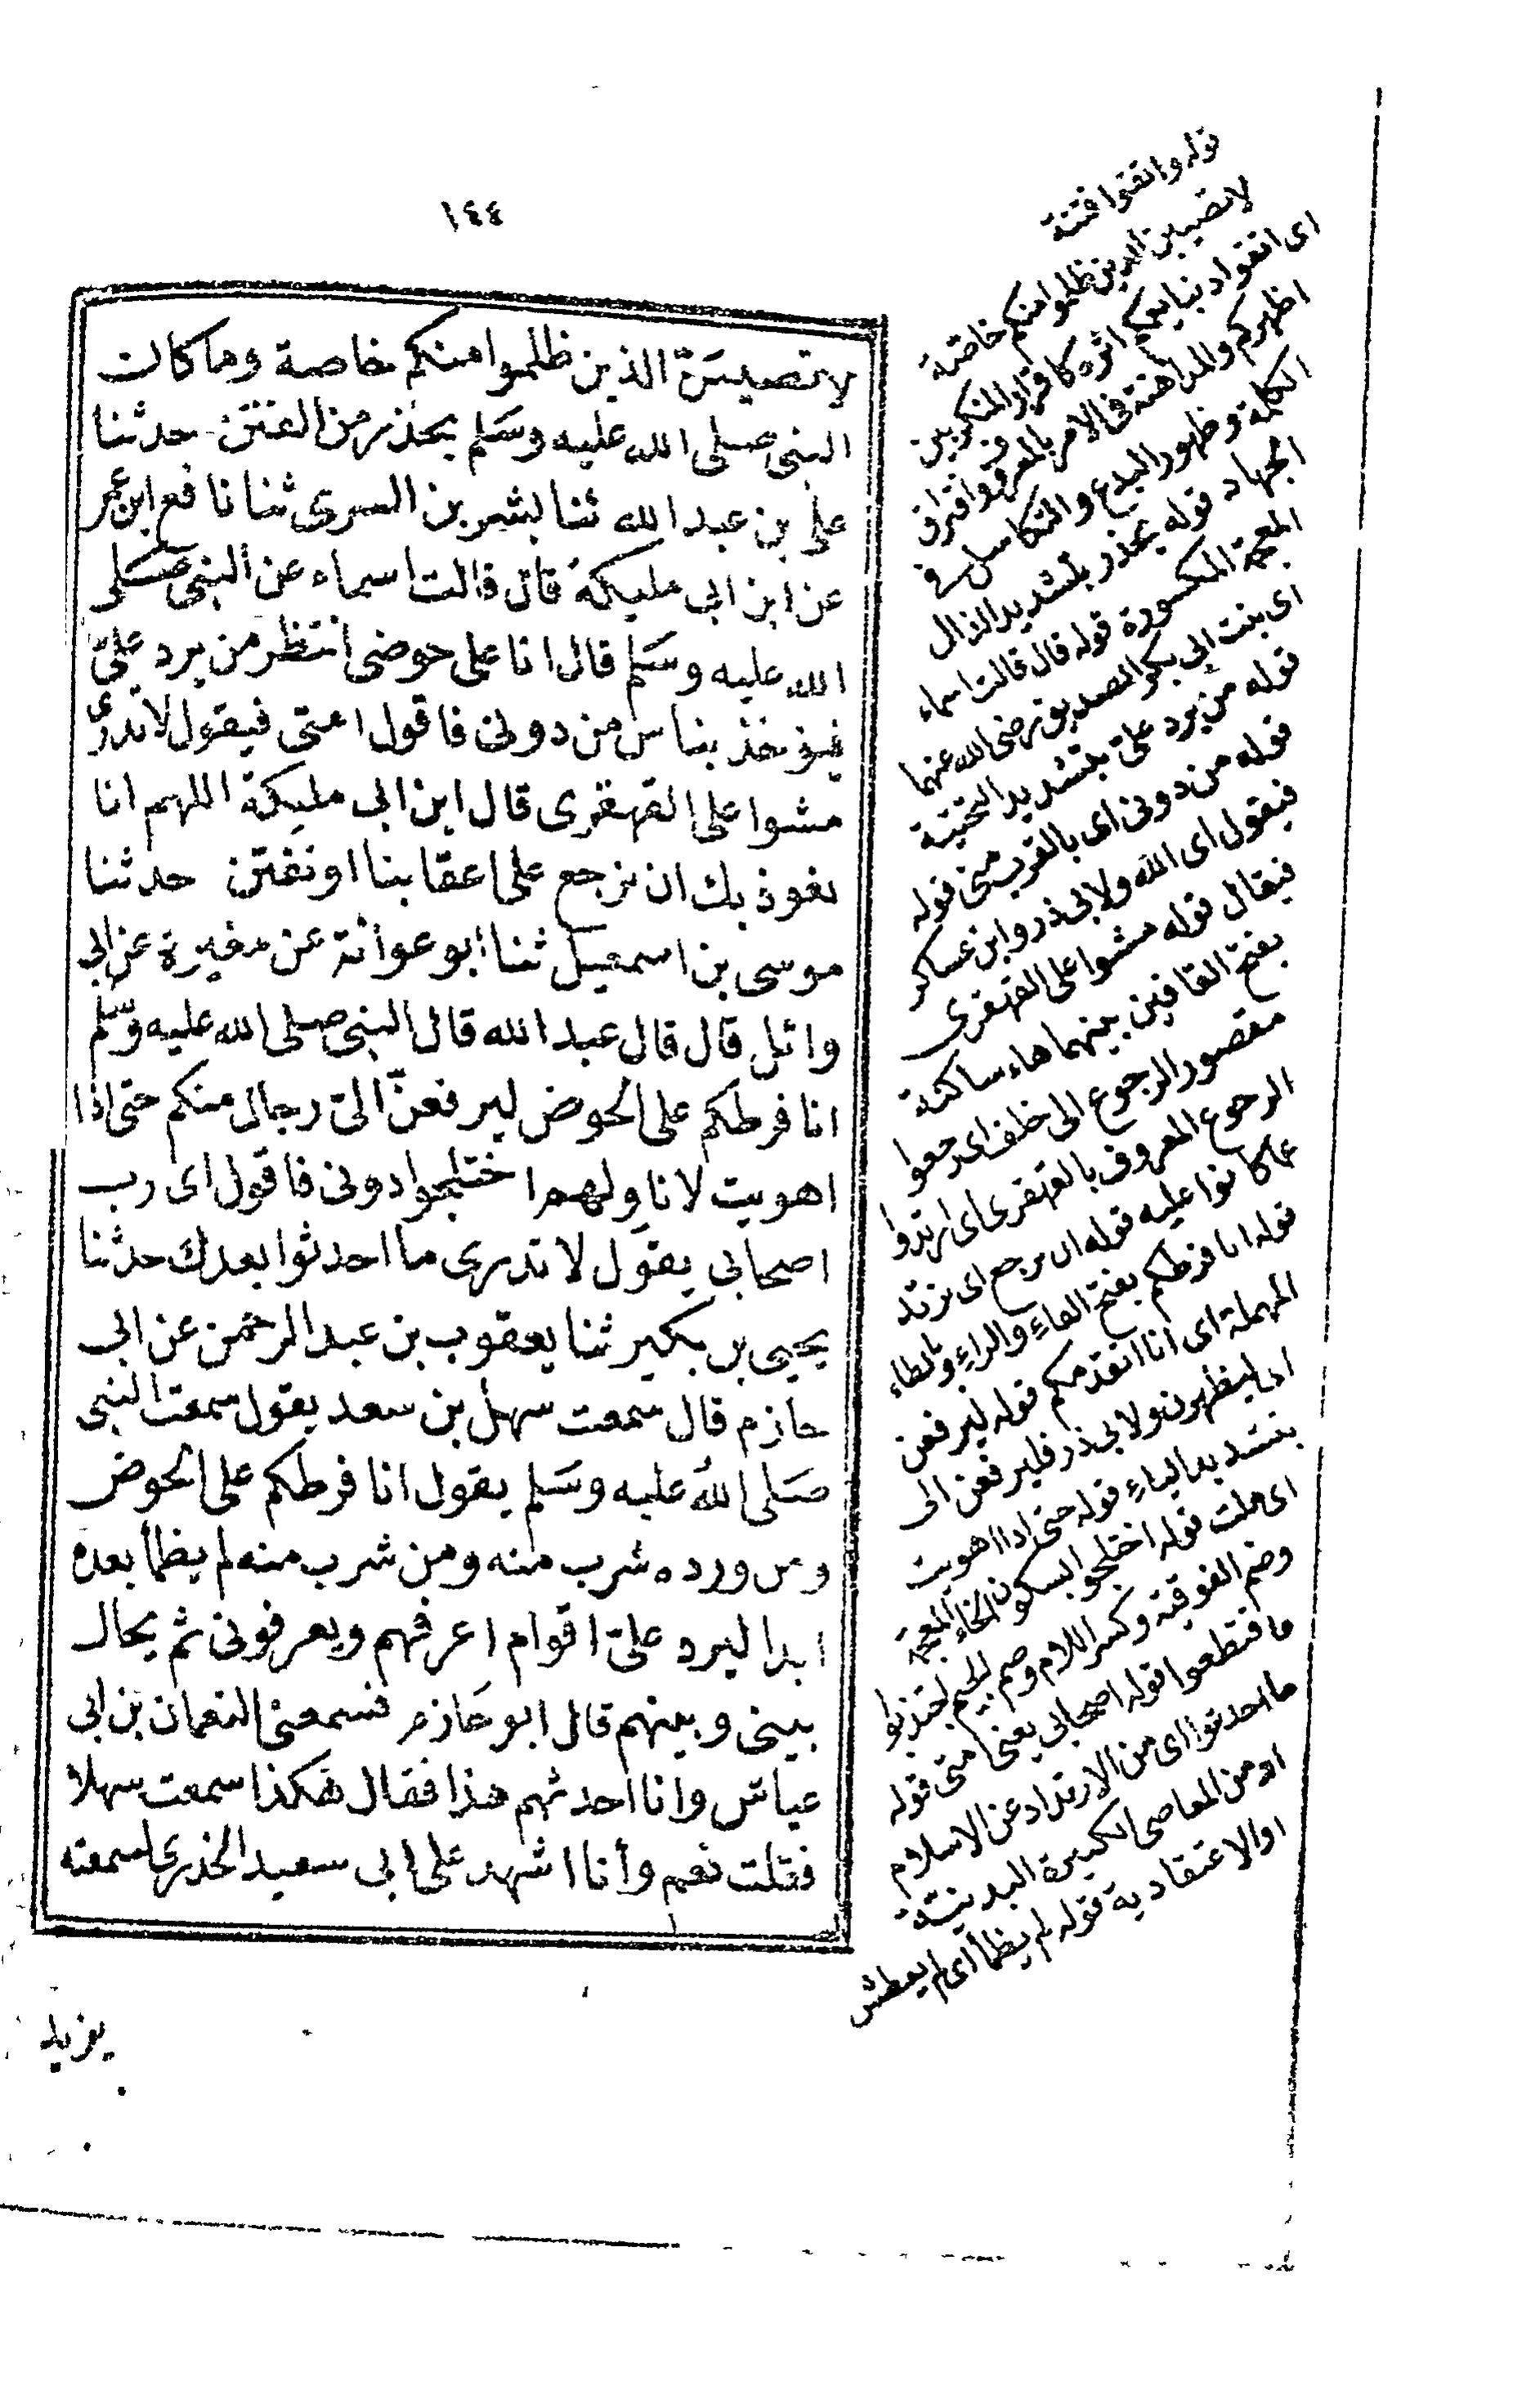 ١٤٤
لا تصيبن الذين ظلموا منكم خاصة وما كان
النبي صلى الله عليه وسلم يحذر من الفتن حدثنا
علي بن عبد الله ثنا بشر بن السري ثنا نافع ابن عمر
عن ابن ابي مليكة قال قالت اسماء عن النبي صلى
الله عليه وسلم قال انا على حوضي انتظر من يرد علي
فيؤخذ بناس من دوني فاقول امتي فيقول لا تدري
مشوا على القهقرى قال ابن ابي مليكة اللهم انا
نعوذ بك ان نرجع على اعقابنا او نفتن حدثنا
موسى بن اسمعيل ثنا ابو عوانة عن مغيرة عن ابي
وائل قال قال عبد الله قال النبي صلى الله عليه وسلم
انا فرطكم على الحوض ليرفعنّ الىّ رجال منكم حتى اذا
اهويت لاناولهم اختلجوا دوني فاقول اى رب
اصحابي يقول لا تدرى ما احدثوا بعدك حدثنا
يحيى بن بكير ثنا يعقوب بن عبد الرحمن عن ابي
حازم قال سمعت سهل بن سعد يقول سمعت النبي
صلى الله عليه وسلم يقول انا فرطكم على الحوض
ومن ورده شرب منه ومن شرب منه لم يظمأ بعده
ابدا ليرد علىّ اقوام اعرفهم ويعرفوني ثم يحال
بيني وبينهم قال ابو حازم فسمعني النعمان بن ابي
عياش وانا احدثهم هذا فقال هكذا سمعت سهلا
فقلت نعم وأنا اشهد على ابي سعيد الخدري لسمعته
يزيد
قوله واتقوا فتنة
لا تصيبن الذين ظلموا منكم خاصة
اى اتقوا ذنبا يعمكم اثره كاقرار المنكر بين
اظهركم والمداهنة في الامر بالمعروف وافتراق
الكلمة وظهور البدع والتكاسل في
الجهاد قوله يحذر بتشديد الذال
المعجمة المكسورة قوله قال قالت اسماء
اى بنت ابي بكر الصديق رضى الله عنهما
قوله من يرد علىّ بتشديد التحتية
قوله من دوني اى بالقرب مني قوله
فيقول اى الله ولابي ذر وابن عساكر
فيقال قوله مشوا على القهقرى
بفتح القافين بينهما هاء ساكنة
مقصور الرجوع الى خلف اى رجعوا
الرجوع المعروف بالقهقرى اى ارتدوا
عما كانوا عليه قوله ان نرجع اى نرتد
قوله انا فرطكم بفتح الفاء والراء وبالطاء
المهملة اى انا اتقدمكم قوله ليرفعن
اى ليظهرن ولابي ذر فليرفعن الى
بتشديد الياء قوله حتى اذا اهويت
اى ملت قوله اختلجوا بسكون الخاء المعجمة
وضم الفوقية وكسر اللام وضم الجيم اجتذبوا
ما فتطعوا قوله اصحابي يعني امتى قوله
ما احدثوا اى من الارتداد عن الاسلام
او من المعاصى الكبيرة البدنية
او الاعتقادية قوله لم يظمأ اى لم يعطش